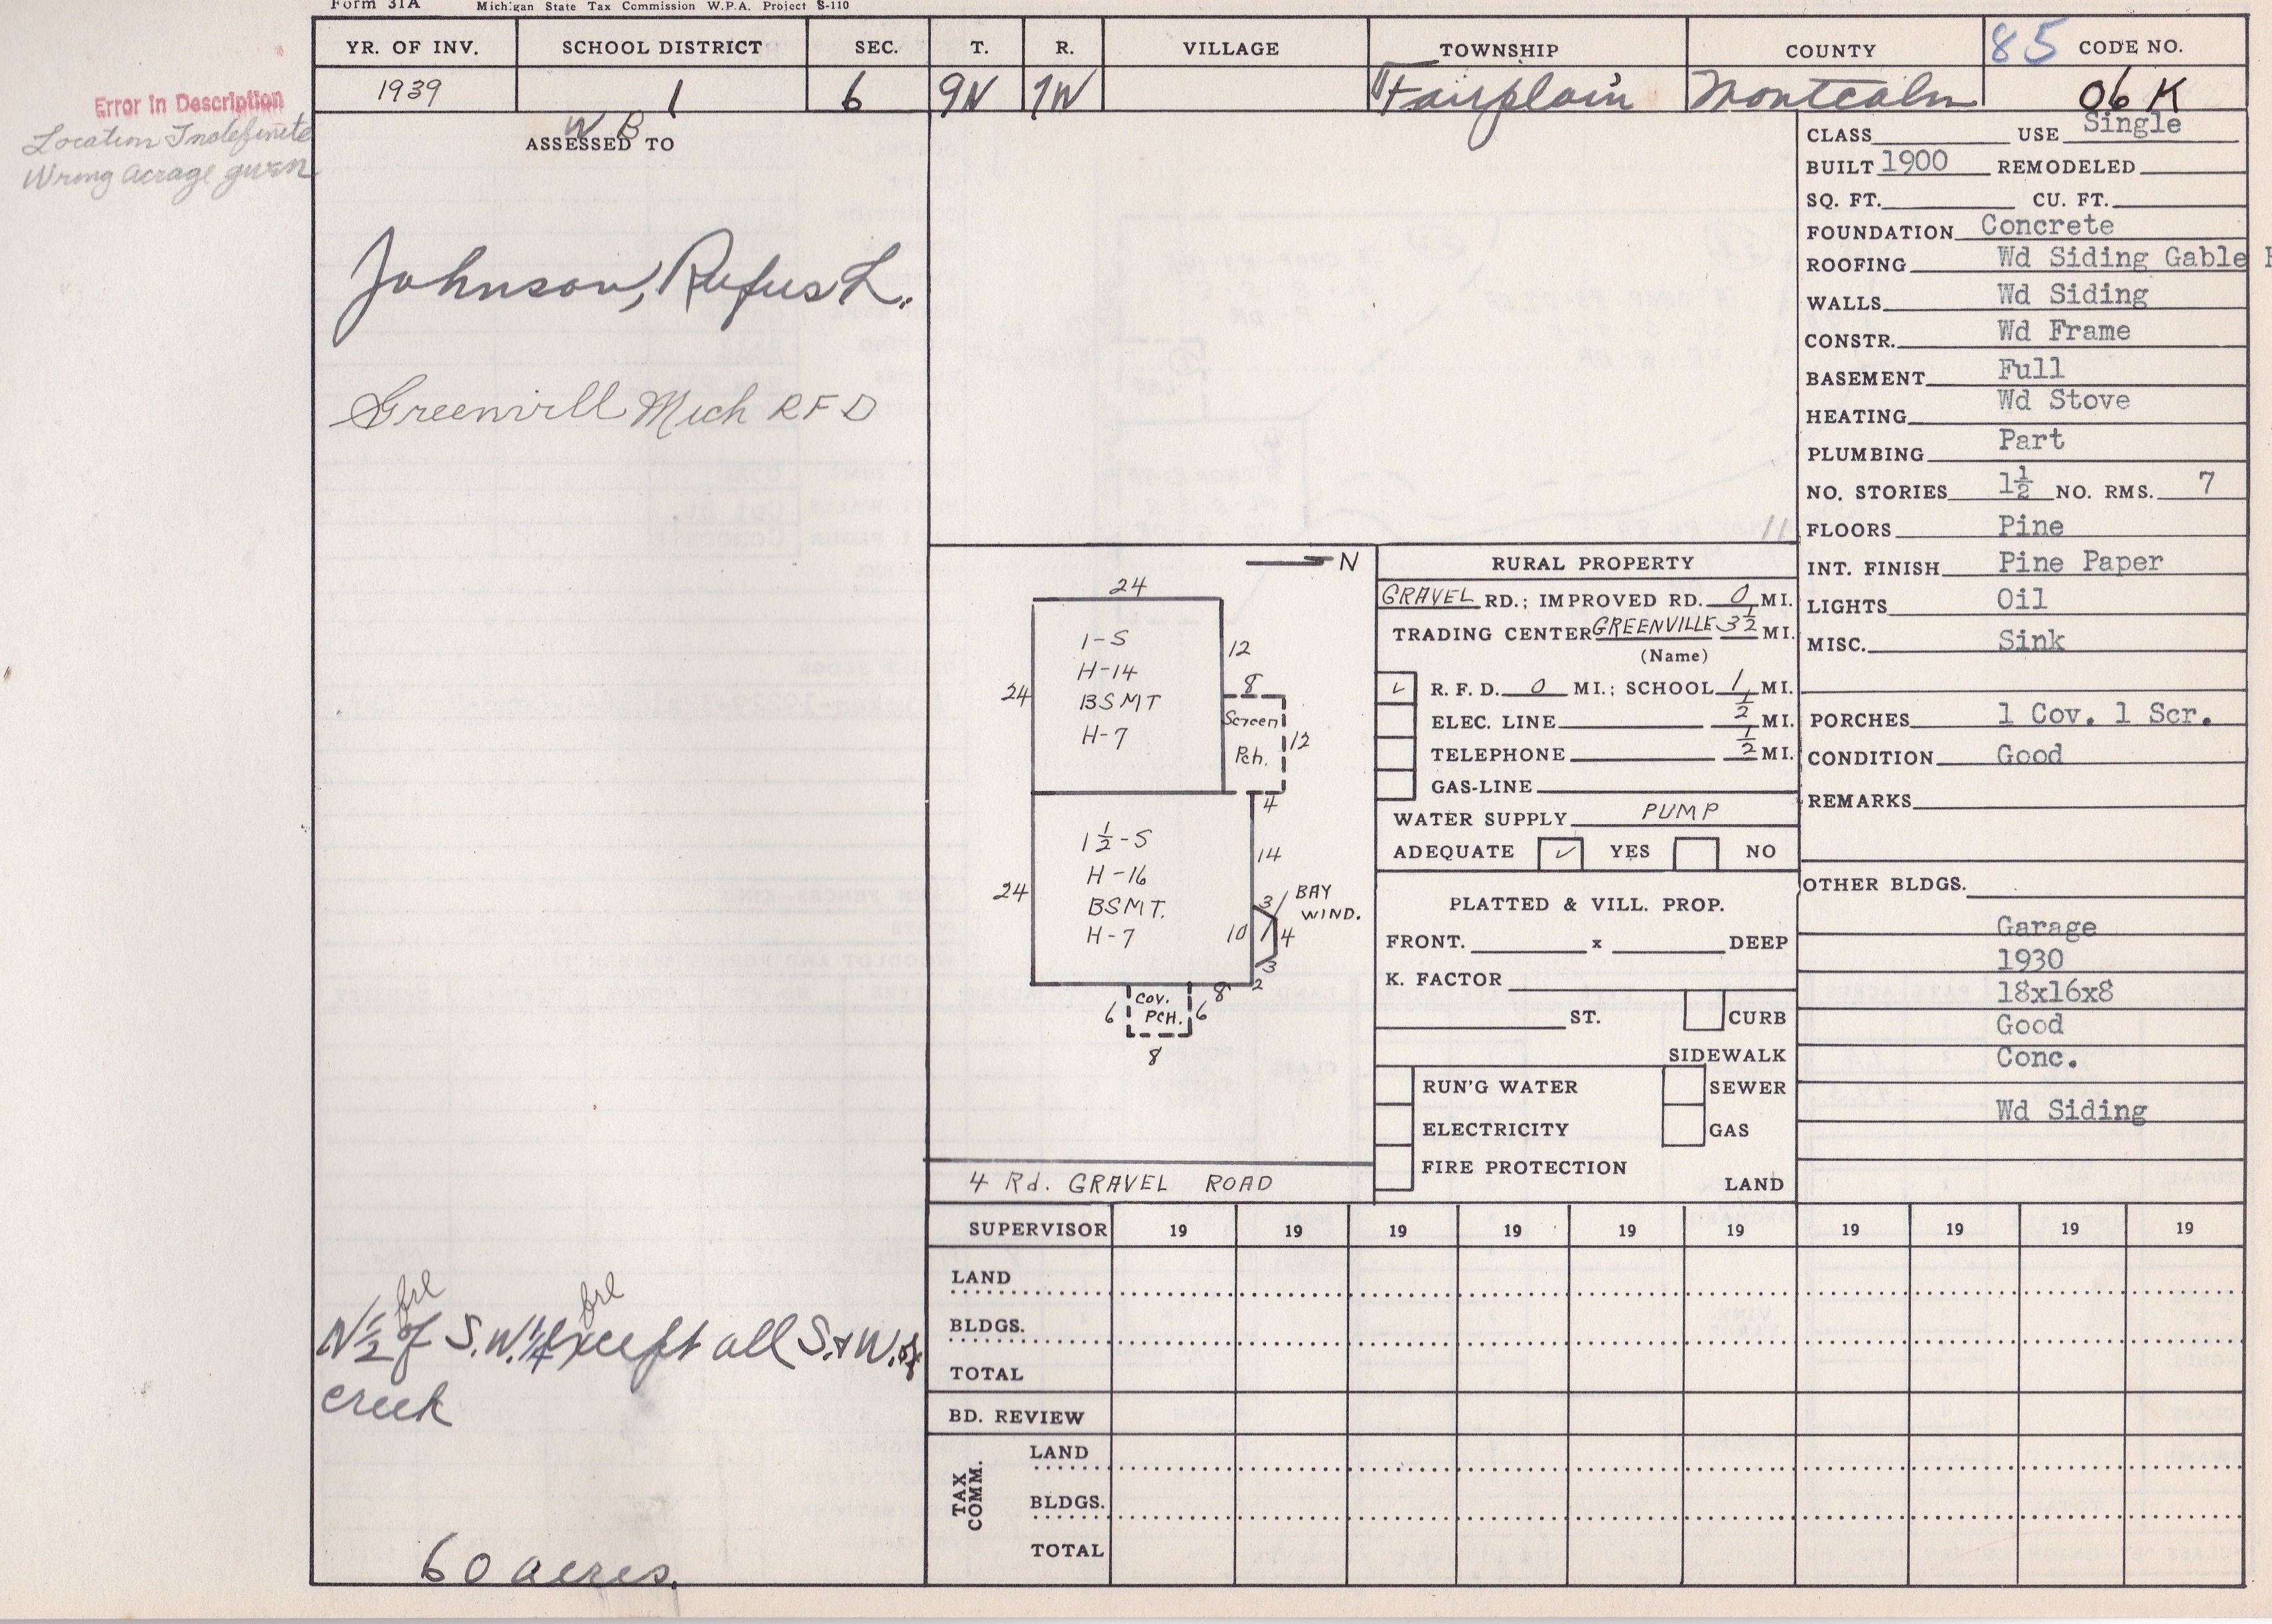 Form 31A Michigan State Tax Commission W.P.A. Project S-110
YR. OF INV. SCHOOL DISTRICT SEC. T. R. VILLAGE TOWNSHIP COUNTY 85 CODE NO.
1939 1 6 9N 7W Fairplain Montcalm 06 K
Error in Description
Location Indefinite
Wrong acrage given
W B
ASSESSED TO
Johnson, Rufus L.
Greenvill Mich RFD
frl frl
N 1/2 of S.W. 1/4 except all S. & W. of
creek
60 acres.
11
N
24
1-S
H-14
BSMT
H-7
24
12
8
Screen
Pch.
12
4
1 1/2-S
H-16
BSMT.
H-7
24
14
3
BAY
WIND.
10
4
3
2
8
6
COV.
PCH.
6
8
4 Rd. GRAVEL ROAD
RURAL PROPERTY
GRAVEL RD.; IMPROVED RD. 0 MI.
TRADING CENTER GREENVILLE 3 1/2 MI.
(Name)
✓ R. F. D. 0 MI.; SCHOOL 1 MI.
ELEC. LINE 1/2 MI.
TELEPHONE 1/2 MI.
GAS-LINE
WATER SUPPLY PUMP
ADEQUATE ✓ YES NO
PLATTED & VILL. PROP.
FRONT. x DEEP
K. FACTOR
ST. CURB
SIDEWALK
RUN'G WATER SEWER
ELECTRICITY GAS
FIRE PROTECTION
LAND
CLASS USE Single
BUILT 1900 REMODELED
SQ. FT. CU. FT.
FOUNDATION Concrete
ROOFING Wd Siding Gable
WALLS Wd Siding
CONSTR. Wd Frame
BASEMENT Full
HEATING Wd Stove
PLUMBING Part
NO. STORIES 1½ NO. RMS. 7
FLOORS Pine
INT. FINISH Pine Paper
LIGHTS Oil
MISC. Sink
PORCHES 1 Cov. 1 Scr.
CONDITION Good
REMARKS
OTHER BLDGS.
Garage
1930
18x16x8
Good
Conc.
Wd Siding
SUPERVISOR 19 19 19 19 19 19 19 19 19 19
LAND
BLDGS.
TOTAL
BD. REVIEW
TAX COMM.
LAND
BLDGS.
TOTAL